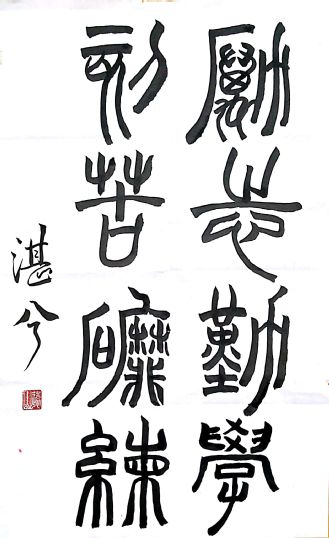 勵志勤學
刻苦礳練
湛兮